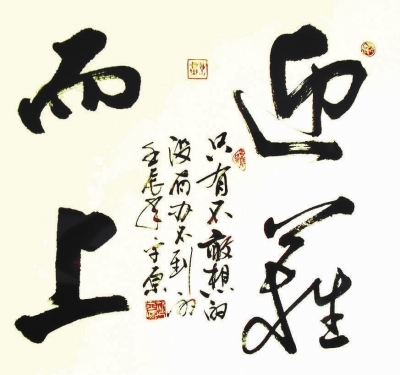 迎難
只有不敢想的
没有办不到的
壬辰年
而上